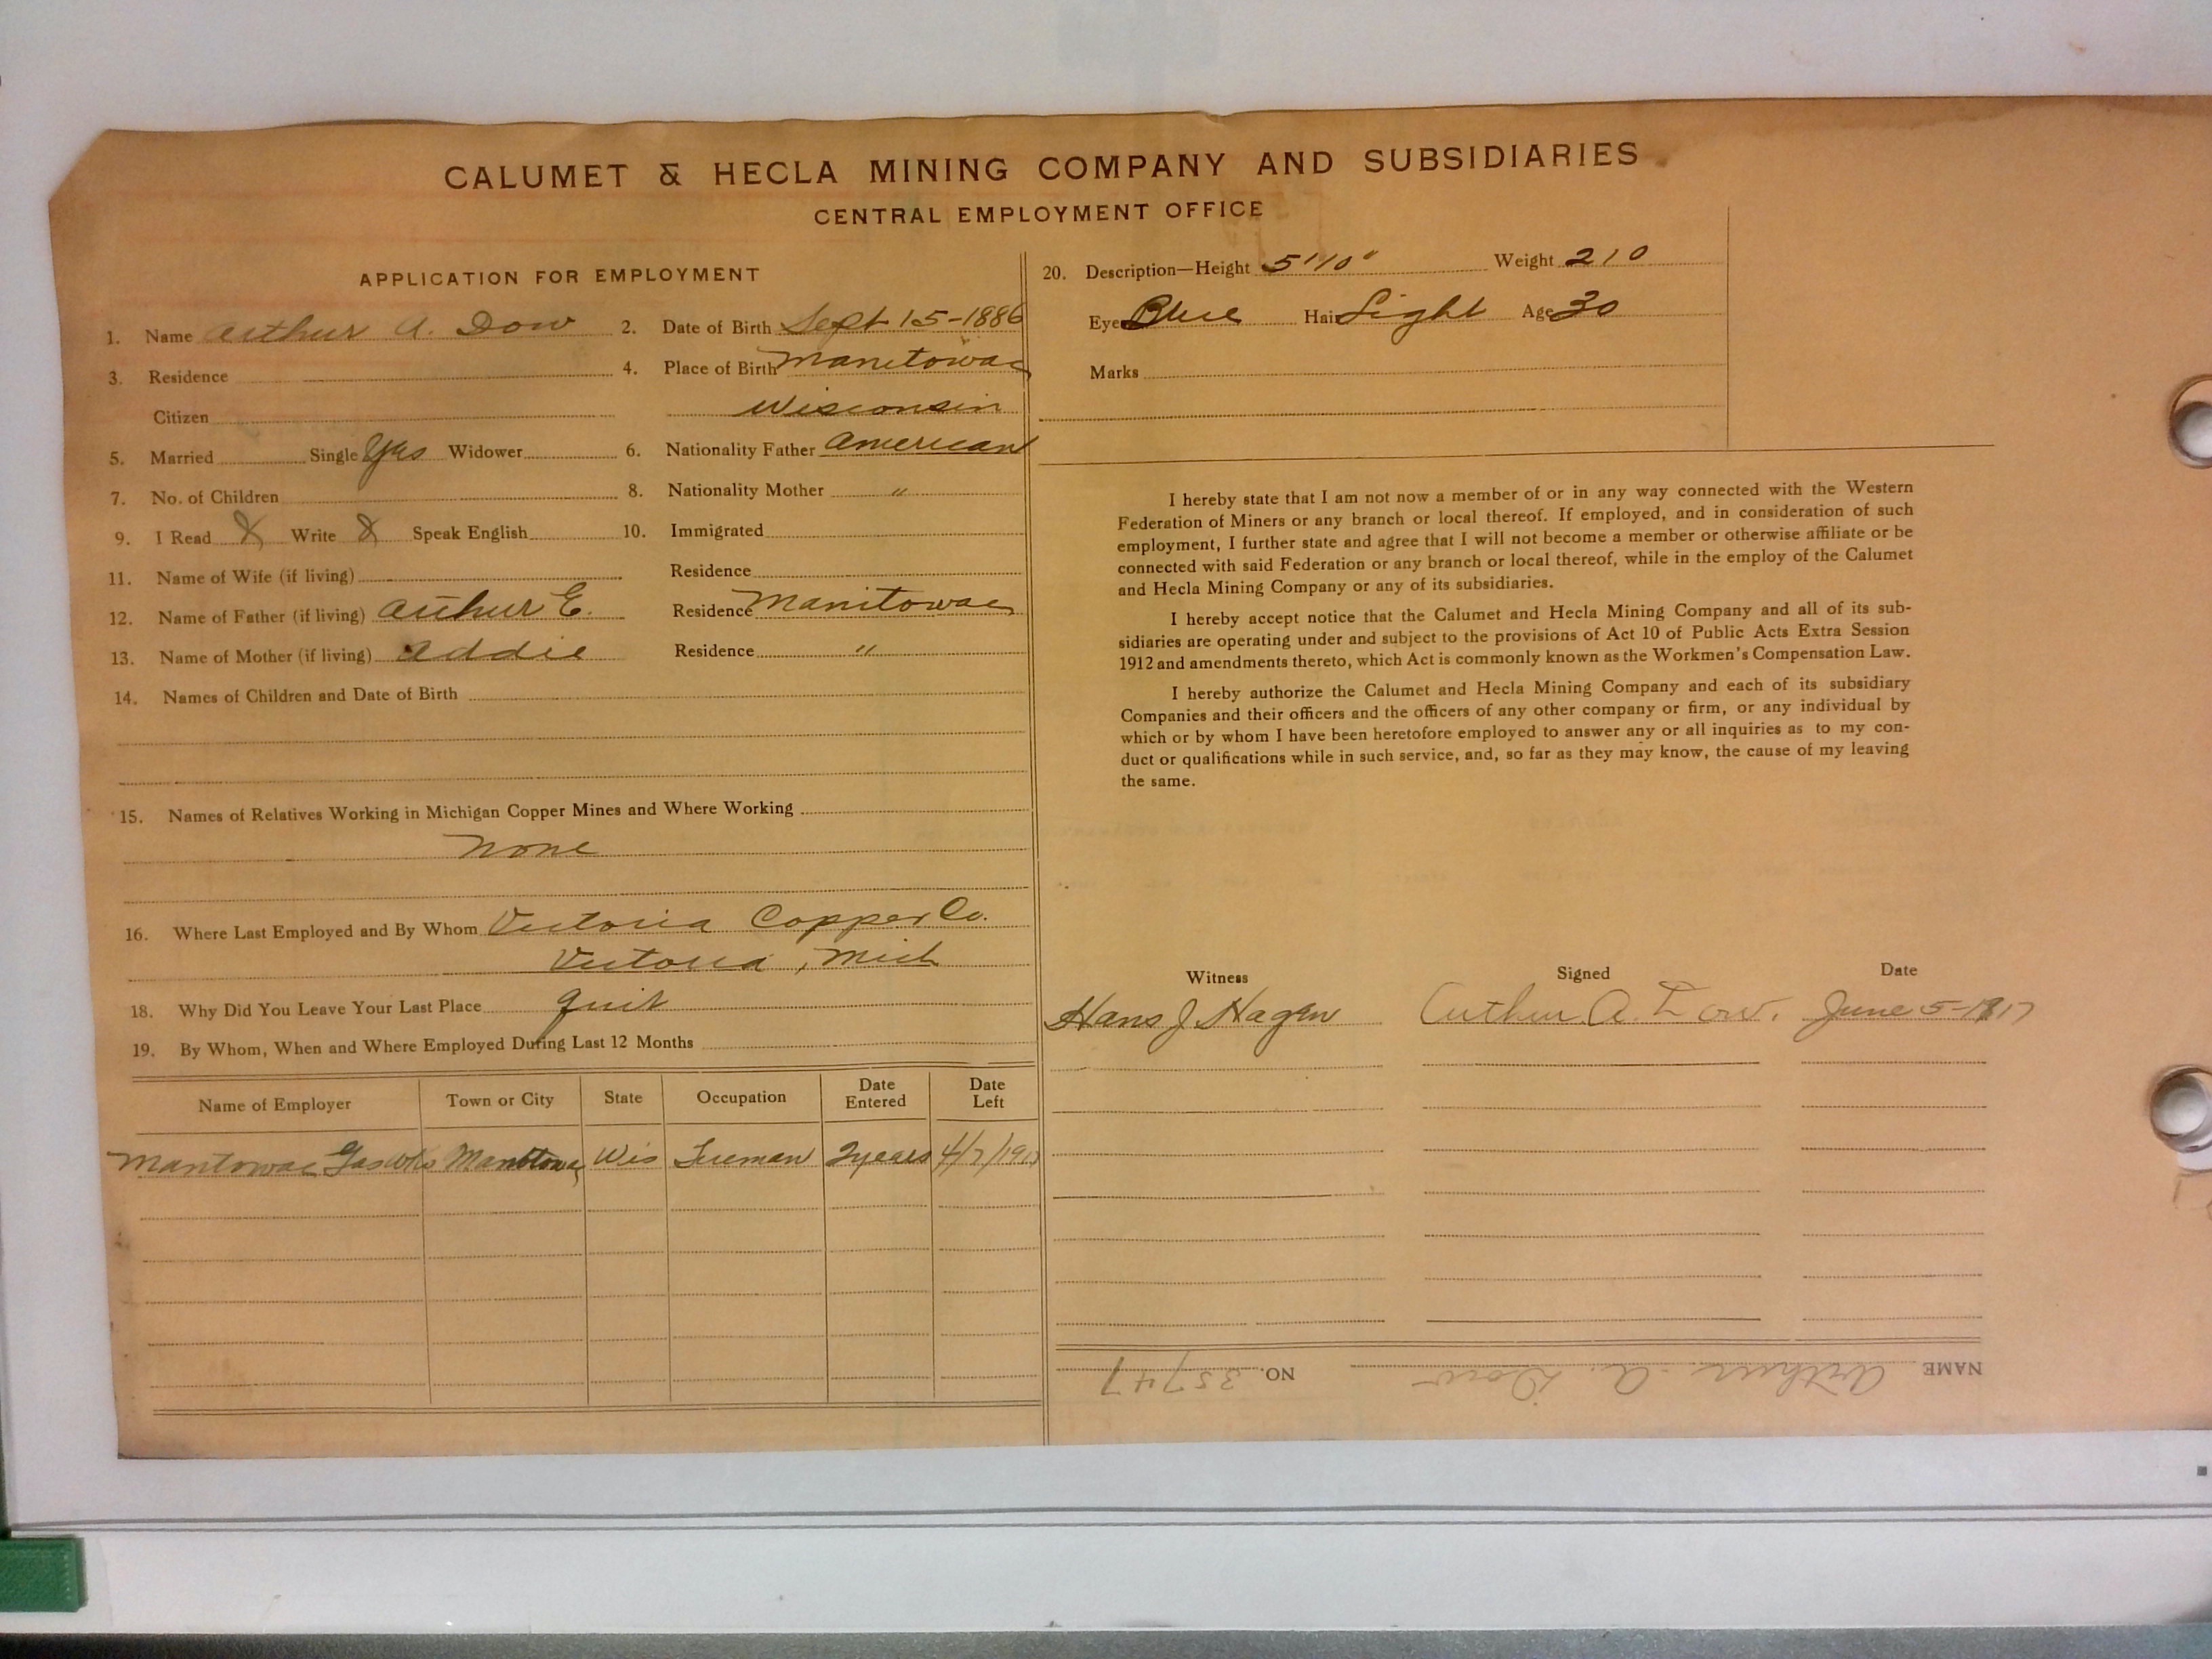 CALUMET & HECLA MINING COMPANY AND SUBSIDIARIES
CENTRAL EMPLOYMENT OFFICE
APPLICATION FOR EMPLOYMENT
1. Name Arthur A. Dow 2. Date of Birth Sept 15-1886
3. Residence 4. Place of Birth Manitowac
Citizen Wisconsin
5. Married Single Yes Widower 6. Nationality Father American
7. No. of Children 8. Nationality Mother "
9. I Read X Write X Speak English 10. Immigrated
11. Name of Wife (if living) Residence
12. Name of Father (if living) Arthur E. Residence Manitowac
13. Name of Mother (if living) Addie Residence "
14. Names of Children and Date of Birth
15. Names of Relatives Working in Michigan Copper Mines and Where Working
None
16. Where Last Employed and By Whom Victoria Copper Co.
Victoria, Mich
18. Why Did You Leave Your Last Place quit
19. By Whom, When and Where Employed During Last 12 Months
Name of Employer Town or City State Occupation Date Entered Date Left
Mantowac Gas Wks Manitowac Wis Fireman 2 years 4/7/1917
20. Description—Height 5'10" Weight 210
Eye Blue Hai Light Age 30
Marks
I hereby state that I am not now a member of or in any way connected with the Western
Federation of Miners or any branch or local thereof. If employed, and in consideration of such
employment, I further state and agree that I will not become a member or otherwise affiliate or be
connected with said Federation or any branch or local thereof, while in the employ of the Calumet
and Hecla Mining Company or any of its subsidiaries.
I hereby accept notice that the Calumet and Hecla Mining Company and all of its sub-
sidiaries are operating under and subject to the provisions of Act 10 of Public Acts Extra Session
1912 and amendments thereto, which Act is commonly known as the Workmen's Compensation Law.
I hereby authorize the Calumet and Hecla Mining Company and each of its subsidiary
Companies and their officers and the officers of any other company or firm, or any individual by
which or by whom I have been heretofore employed to answer any or all inquiries as to my con-
duct or qualifications while in such service, and, so far as they may know, the cause of my leaving
the same.
Witness Signed Date
Hans J Hagen Arthur A. Dow. June 5-1917
NAME Arthur A. Dow NO. 35747